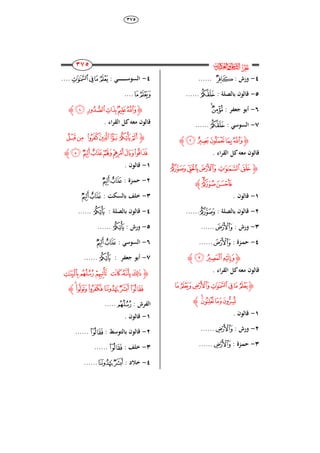 ٣٧٥
٣٧٥
٤- ورش : كَافِرٌ ......
٥- قالون بالصلة : خَلَقَكُمُ ......
٦- أبو جعفر : مُّؤْمِنٌ ......
٧- السوسي : خَلَقَكُمُ ......
﴿ وَٱللَّهُ بِمَا تَعْمَلُونَ بَصِيرٌ ۝٢ ﴾
قالون معه كل القراء .
﴿ خَلَقَ ٱلسَّمَٰوَٰتِ وَٱلْأَرْضَ بِٱلْحَقِّ وَصَوَّرَكُمْ فَأَحْسَنَ صُوَرَكُمْ ﴾
١- قالون .
٢- قالون بالصلة : وَصَوَّرَكُمُ ......
٣- ورش : وَٱلْأَرْضَ ......
٤- حمزة : وَٱلْأَرْضَ ......
﴿ وَإِلَيْهِ ٱلْمَصِيرُ ۝٣ ﴾
قالون معه كل القراء .
﴿ يَعْلَمُ مَا فِي ٱلسَّمَٰوَٰتِ وَٱلْأَرْضِ وَيَعْلَمُ مَا تُسِرُّونَ وَمَا تُعْلِنُونَ ﴾
١- قالون .
٢- ورش : وَٱلْأَرْضِ ......
٣- حمزة : وَٱلْأَرْضِ ......
٤- السوسي : يَعْلَمُ مَا فِي ٱلسَّمَٰوَٰتِ ....
وَيَعْلَمُ مَا ....
﴿ وَٱللَّهُ عَلِيمٌ بِذَاتِ ٱلصُّدُورِ ۝٤ ﴾
قالون معه كل القراء .
﴿ أَلَمْ يَأْتِكُمْ نَبَؤُا۟ ٱلَّذِينَ كَفَرُوا۟ مِن قَبْلُ فَذَاقُوا۟ وَبَالَ أَمْرِهِمْ وَلَهُمْ عَذَابٌ أَلِيمٌ ۝٥ ﴾
١- قالون .
٢- حمزة : عَذَابٌ أَلِيمٌ
٣- خلف بالسكت : عَذَابٌ أَلِيمٌ
٤- قالون بالصلة : يَأْتِكُمُ ......
٥- ورش : يَاتِكُمْ ......
٦- السوسي : عَذَابٌ أَلِيمٌ
٧- أبو جعفر : يَاتِكُمُ ......
﴿ ذَٰلِكَ بِأَنَّهُۥ كَانَت تَّأْتِيهِمْ رُسُلُهُم بِٱلْبَيِّنَٰتِ فَقَالُوٓا۟ أَبَشَرٌ يَهْدُونَنَا فَكَفَرُوا۟ وَتَوَلَّوا۟ ﴾
الفرش : رُسُلُهُمْ .....
١- قالون .
٢- قالون بالتوسط : فَقَالُوٓا۟ ......
٣- خلف : فَقَالُوٓا۟ ......
٤- خلاد : أَبَشَرٌ يَهْدُونَنَا ......